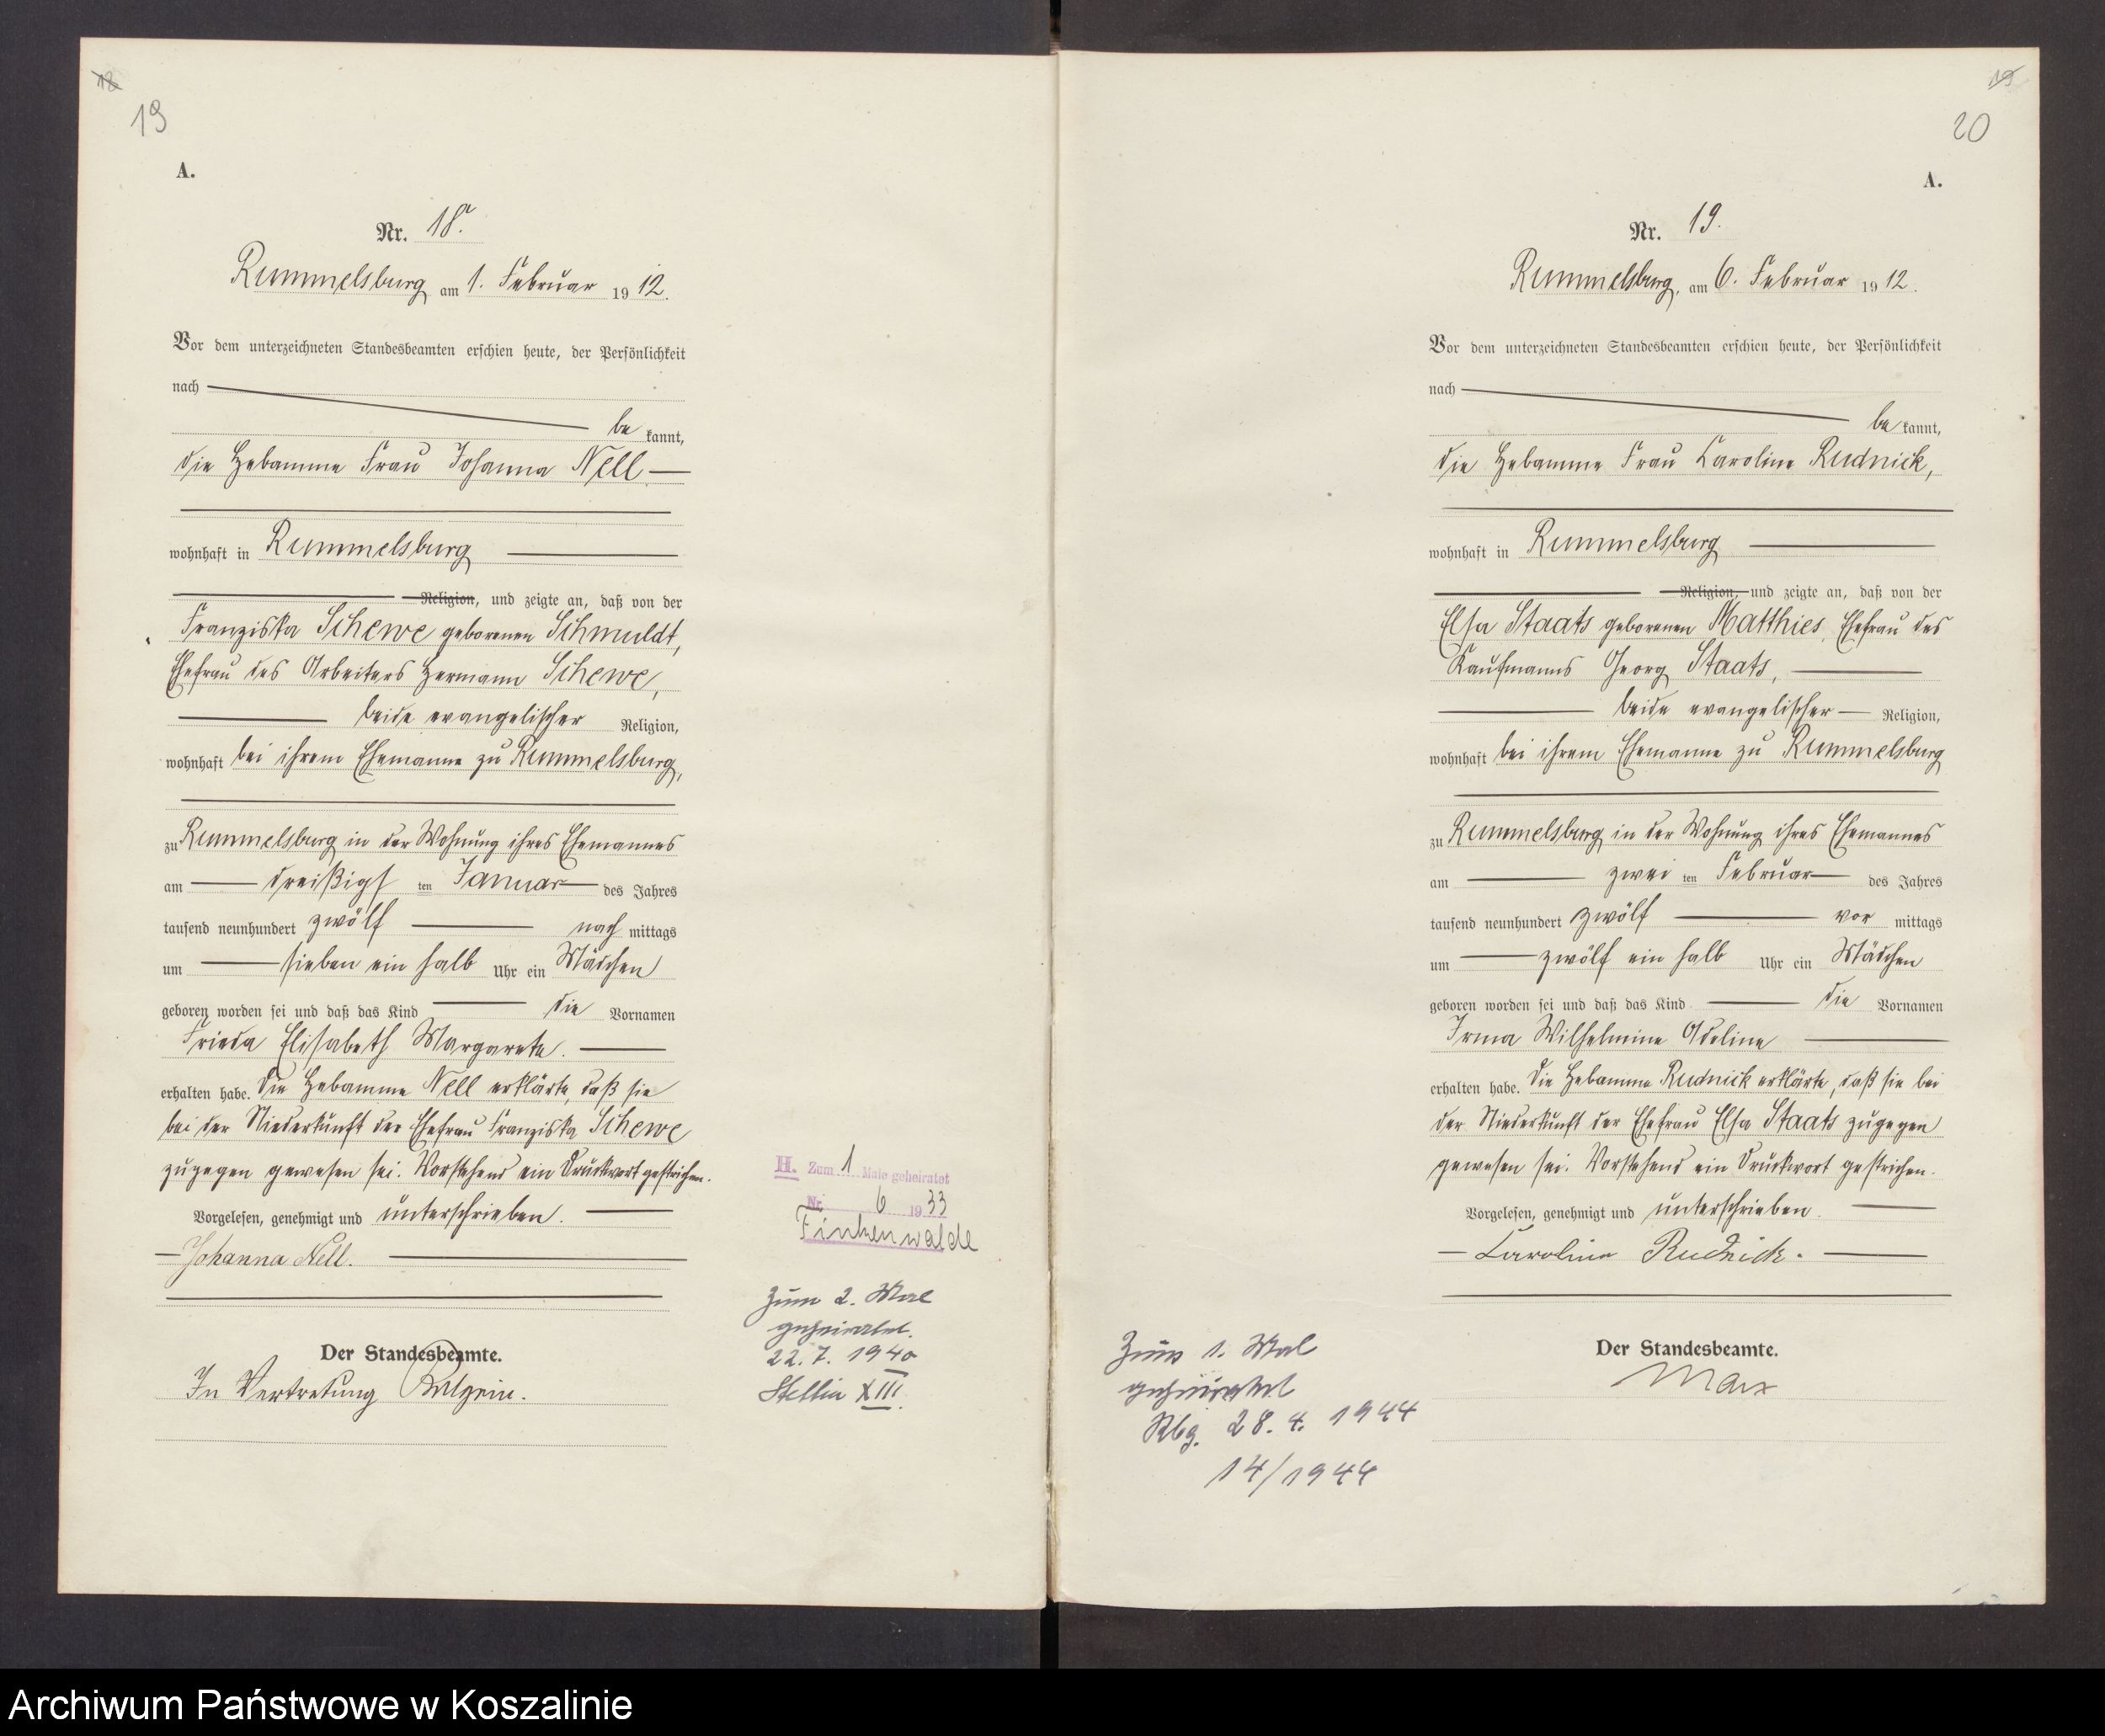 18
19
A.
Nr. 18.
Rummelsburg am 1. Februar 1912.
Vor dem unterzeichneten Standesbeamten erschien heute, der Persönlichkeit
nach
bekannt,
die Hebamme Frau Johanna Nell
wohnhaft in Rummelsburg
Religion, und zeigte an, daß von der
Franziska Schewe geborenen Schmuldt,
Ehefrau des Arbeiters Hermann Schewe,
beide evangelischer Religion,
wohnhaft bei ihrem Ehemanne zu Rummelsburg,
zu Rummelsburg in der Wohnung ihres Ehemannes
am dreißigsten Januar des Jahres
tausend neunhundert zwölf nachmittags
um sieben ein halb Uhr ein Mädchen
geboren worden sei und daß das Kind die Vornamen
Frieda Elisabeth Margarete.
erhalten habe. Die Hebamme Nell erklärte, daß sie
bei der Niederkunft der Ehefrau Franziska Schewe
zugegen gewesen sei. Vorstehend ein Druckwort gestrichen.
Vorgelesen, genehmigt und unterschrieben.
Johanna Nell.
Der Standesbeamte.
In Vertretung
H. Zum 1 Male geheiratet
Nr. 6 1933
Finkenwalde
Zum 2. Mal
geheiratet.
22. 7. 1940
Stettin XIII.
19
20
A.
Nr. 19.
Rummelsburg, am 6. Februar 1912.
Vor dem unterzeichneten Standesbeamten erschien heute, der Persönlichkeit
nach
bekannt,
die Hebamme Frau Caroline Rudnick,
wohnhaft in Rummelsburg
Religion, und zeigte an, daß von der
Elsa Staats geborenen Matthies, Ehefrau des
Kaufmanns Georg Staats,
beide evangelischer Religion,
wohnhaft bei ihrem Ehemanne zu Rummelsburg
zu Rummelsburg in der Wohnung ihres Ehemannes
am zweiten Februar des Jahres
tausend neunhundert zwölf vormittags
um zwölf ein halb Uhr ein Mädchen
geboren worden sei und daß das Kind die Vornamen
Irma Wilhelmine Adeline
erhalten habe. Die Hebamme Rudnick erklärte, daß sie bei
der Niederkunft der Ehefrau Elsa Staats zugegen
gewesen sei. Vorstehend ein Druckwort gestrichen.
Vorgelesen, genehmigt und unterschrieben.
Caroline Rudnick.
Der Standesbeamte.
Marx
Zum 1. Mal
geheiratet
Rbg. 28. 4. 1944
14/1944
Archiwum Państwowe w Koszalinie